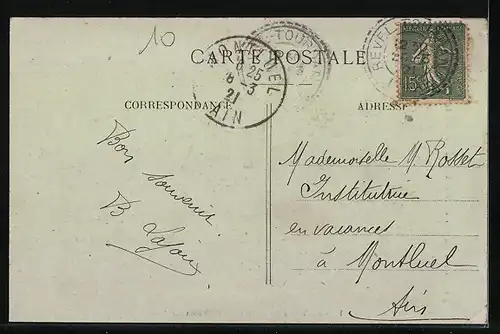 10
CARTE POSTALE
CORRESPONDANCE
ADRESSE
MONTLUEL
8
25
-3
21
AIN
REVEL-TOURDAN
15c
Bon
souvenir
B Lajoux
Mademoiselle M. Rosset
Institutrice
en vacances
à Montluel
Ain